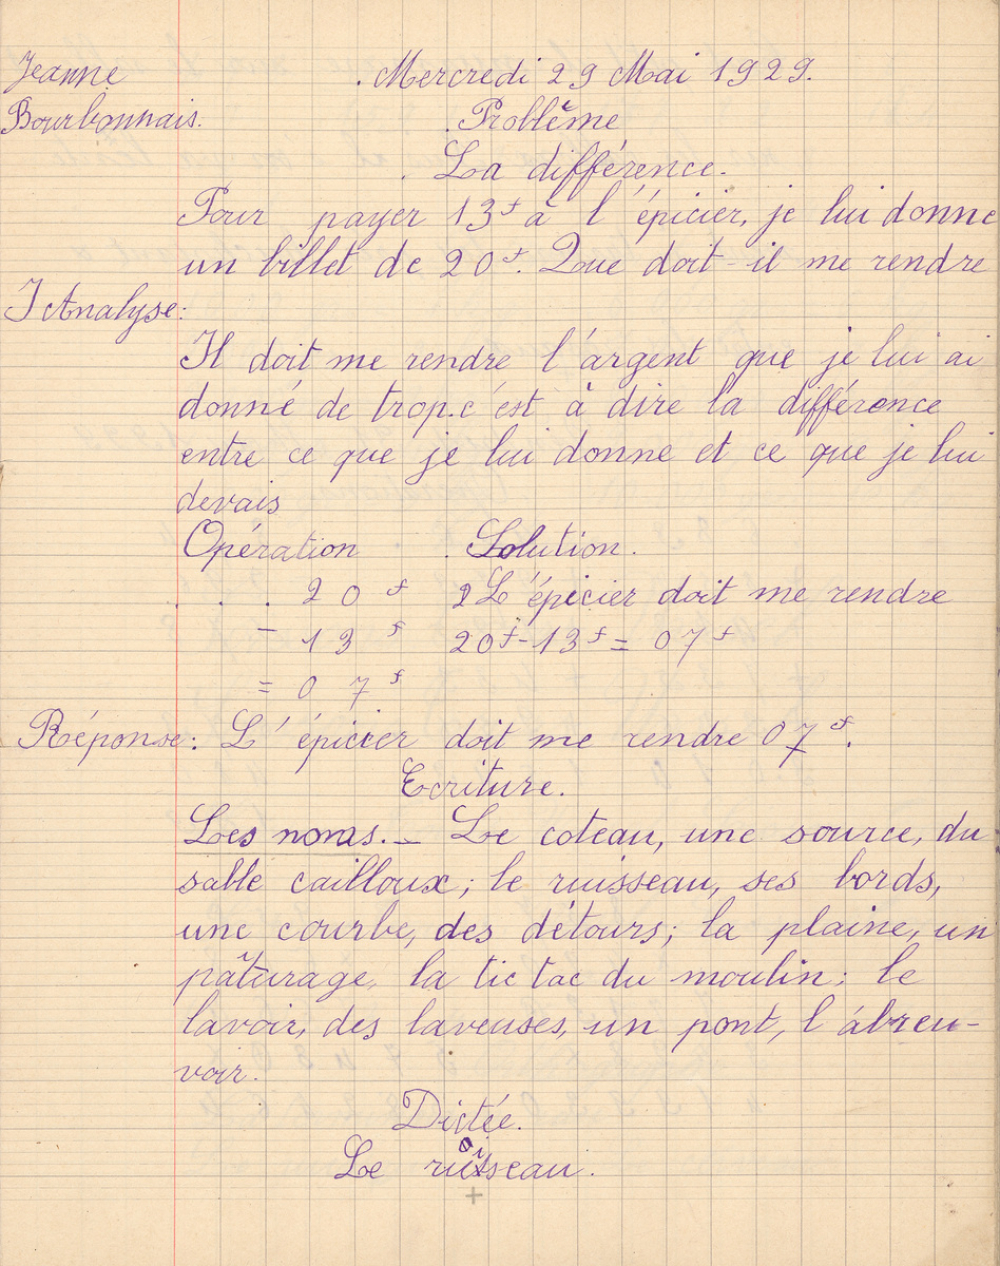 Jeanne
Bourbonnais.
. Mercredi 29 Mai 1929.
. Problême
. La différence.
Pour payer 13f à l'épicier, je lui donne
un billet de 20f. Que doit-il me rendre
I Analyse:
Il doit me rendre l'argent que je lui ai
donné de trop.c'est à dire la différence
entre ce que je lui donne et ce que je lui
devais
Opération . Solution.
. . . 20 f 2 L'épicier doit me rendre
- 13 f 20f-13f= 07f
= 07 f
Réponse: L'épicier doit me rendre 07f.
Ecriture.
Les noms. _ Le coteau, une source, du
sable cailloux; le ruisseau, ses bords,
une courbe, des détours; la plaine, un
pâturage, la tic tac du moulin; le
lavoir, des laveuses, un pont, l'abreu-
voir.
Dictée.
Le ruisseau.
+